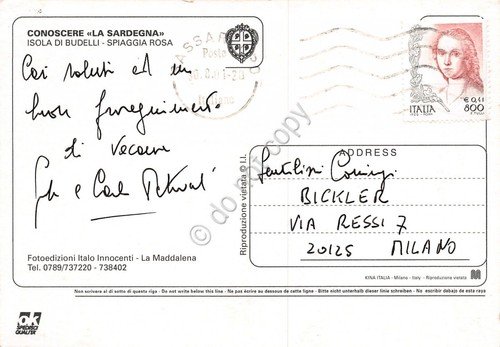 CONOSCERE «LA SARDEGNA»
ISOLA DI BUDELLI - SPIAGGIA ROSA
Cari saluti ed un
buon proseguimento
di vacanze
e Carlo
Fotoedizioni Italo Innocenti - La Maddalena
Tel. 0789/737220 - 738402
Riproduzione vietata © I.I.
€ 0,41
ITALIA 800
ADDRESS
Gentilissimi Coniugi
BICKLER
VIA RESSI 7
20125 MILANO
KINA ITALIA - Milano - Italy - Riproduzione vietata
Non scrivere al di sotto di questa riga - Do not write below this line - Ne pas écrire au dessous de cette ligne - Bitte nicht unterhalb dieser linie schreiben - No escribir debajo de esta raya
OK
SPEDISCI
QUALITA'
© do not copy